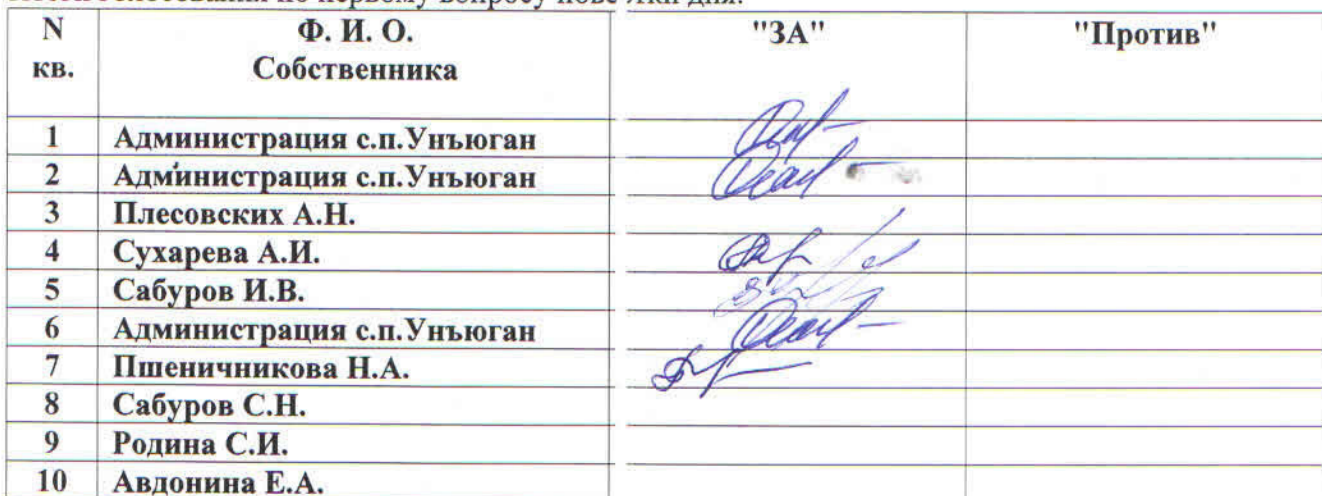 по первому вопросу дня.
N кв. Ф. И. О. Собственника "ЗА" "Против"
1 Администрация с.п.Унъюган
2 Администрация с.п.Унъюган
3 Плесовских А.Н.
4 Сухарева А.И.
5 Сабуров И.В.
6 Администрация с.п.Унъюган
7 Пшеничникова Н.А.
8 Сабуров С.Н.
9 Родина С.И.
10 Авдонина Е.А.